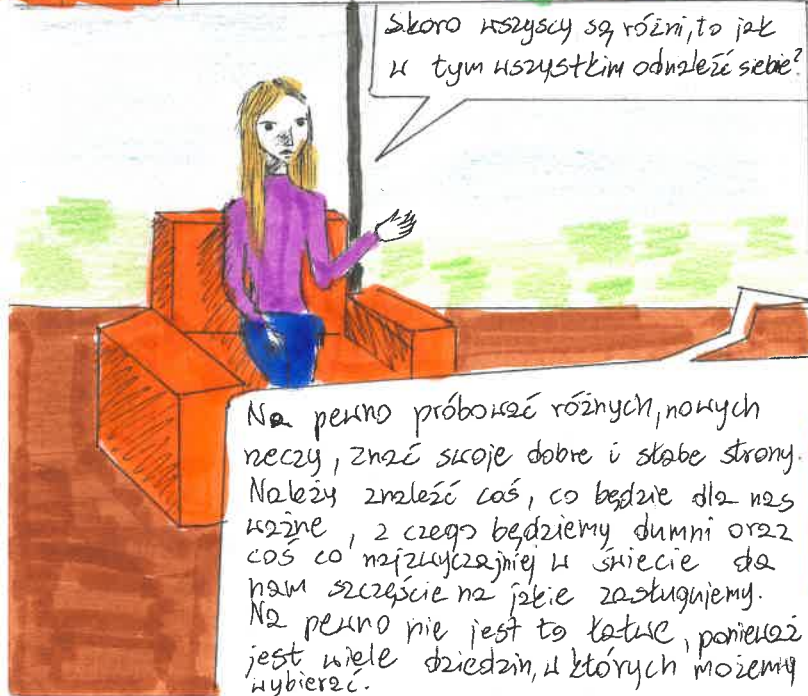 Skoro wszyscy są różni, to jak
w tym wszystkim odnaleźć siebie?
Na pewno próbować różnych, nowych
rzeczy, znać swoje dobre i słabe strony.
Należy znaleźć coś, co będzie dla nas
ważne, z czego będziemy dumni oraz
coś co najzwyczajniej w świecie da
nam szczęście na jakie zasługujemy.
Na pewno nie jest to łatwe, ponieważ
jest wiele dziedzin, w których możemy
wybierać.